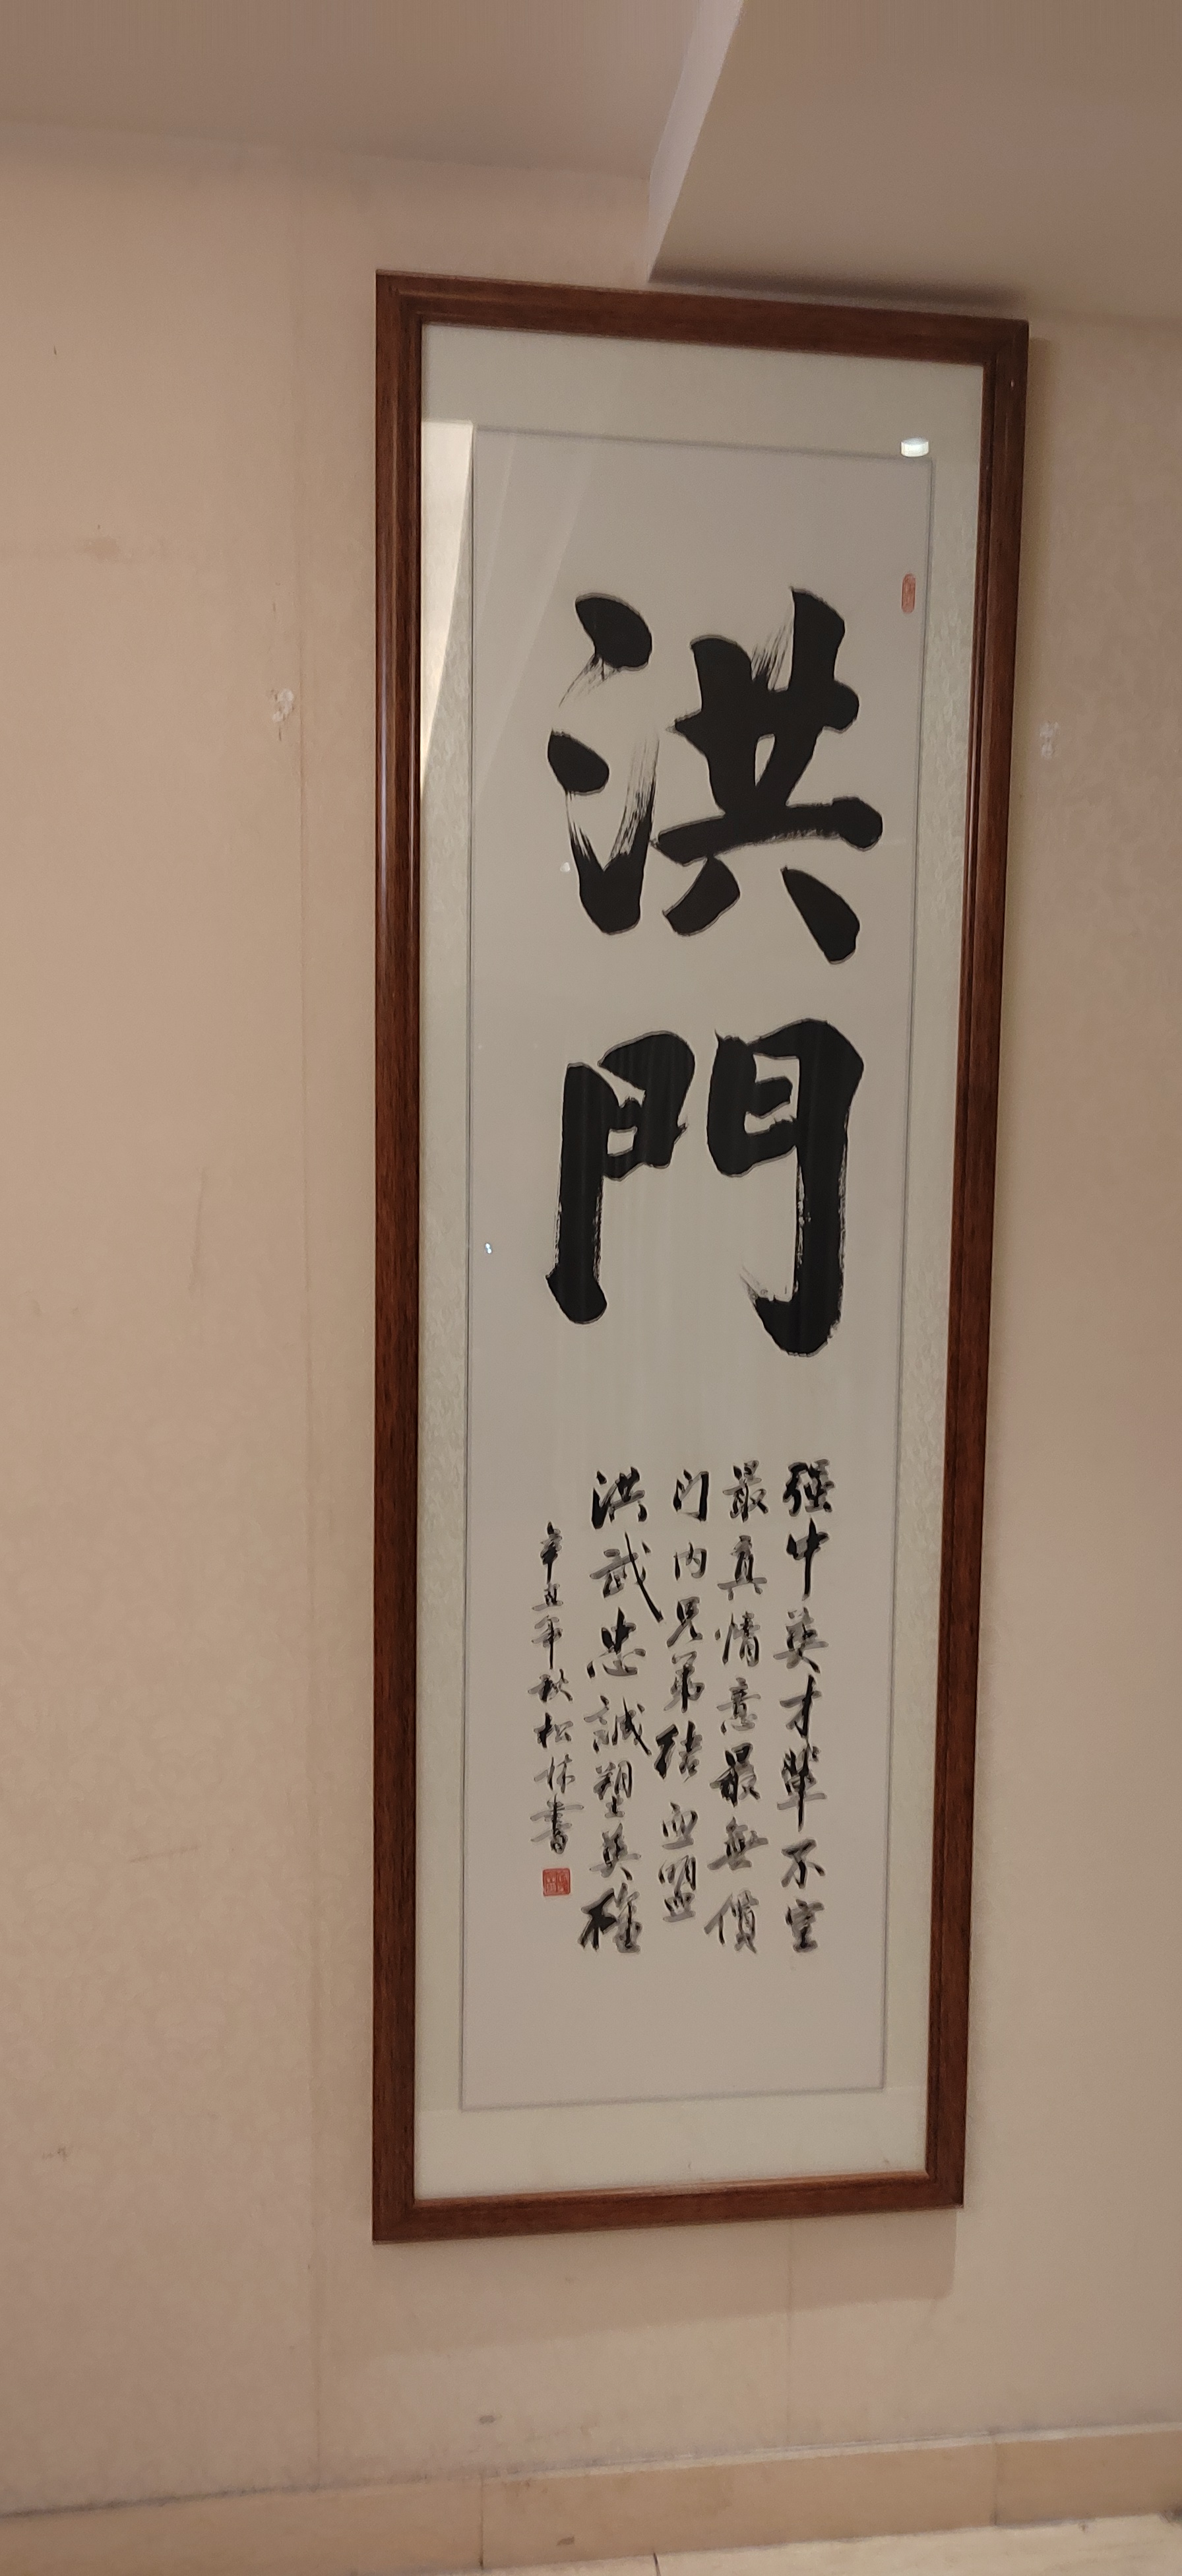 洪門
强中英才輩不空
最真情意最無價
门内兄弟结血盟
洪武忠誠塑英雄
辛丑年秋松林書